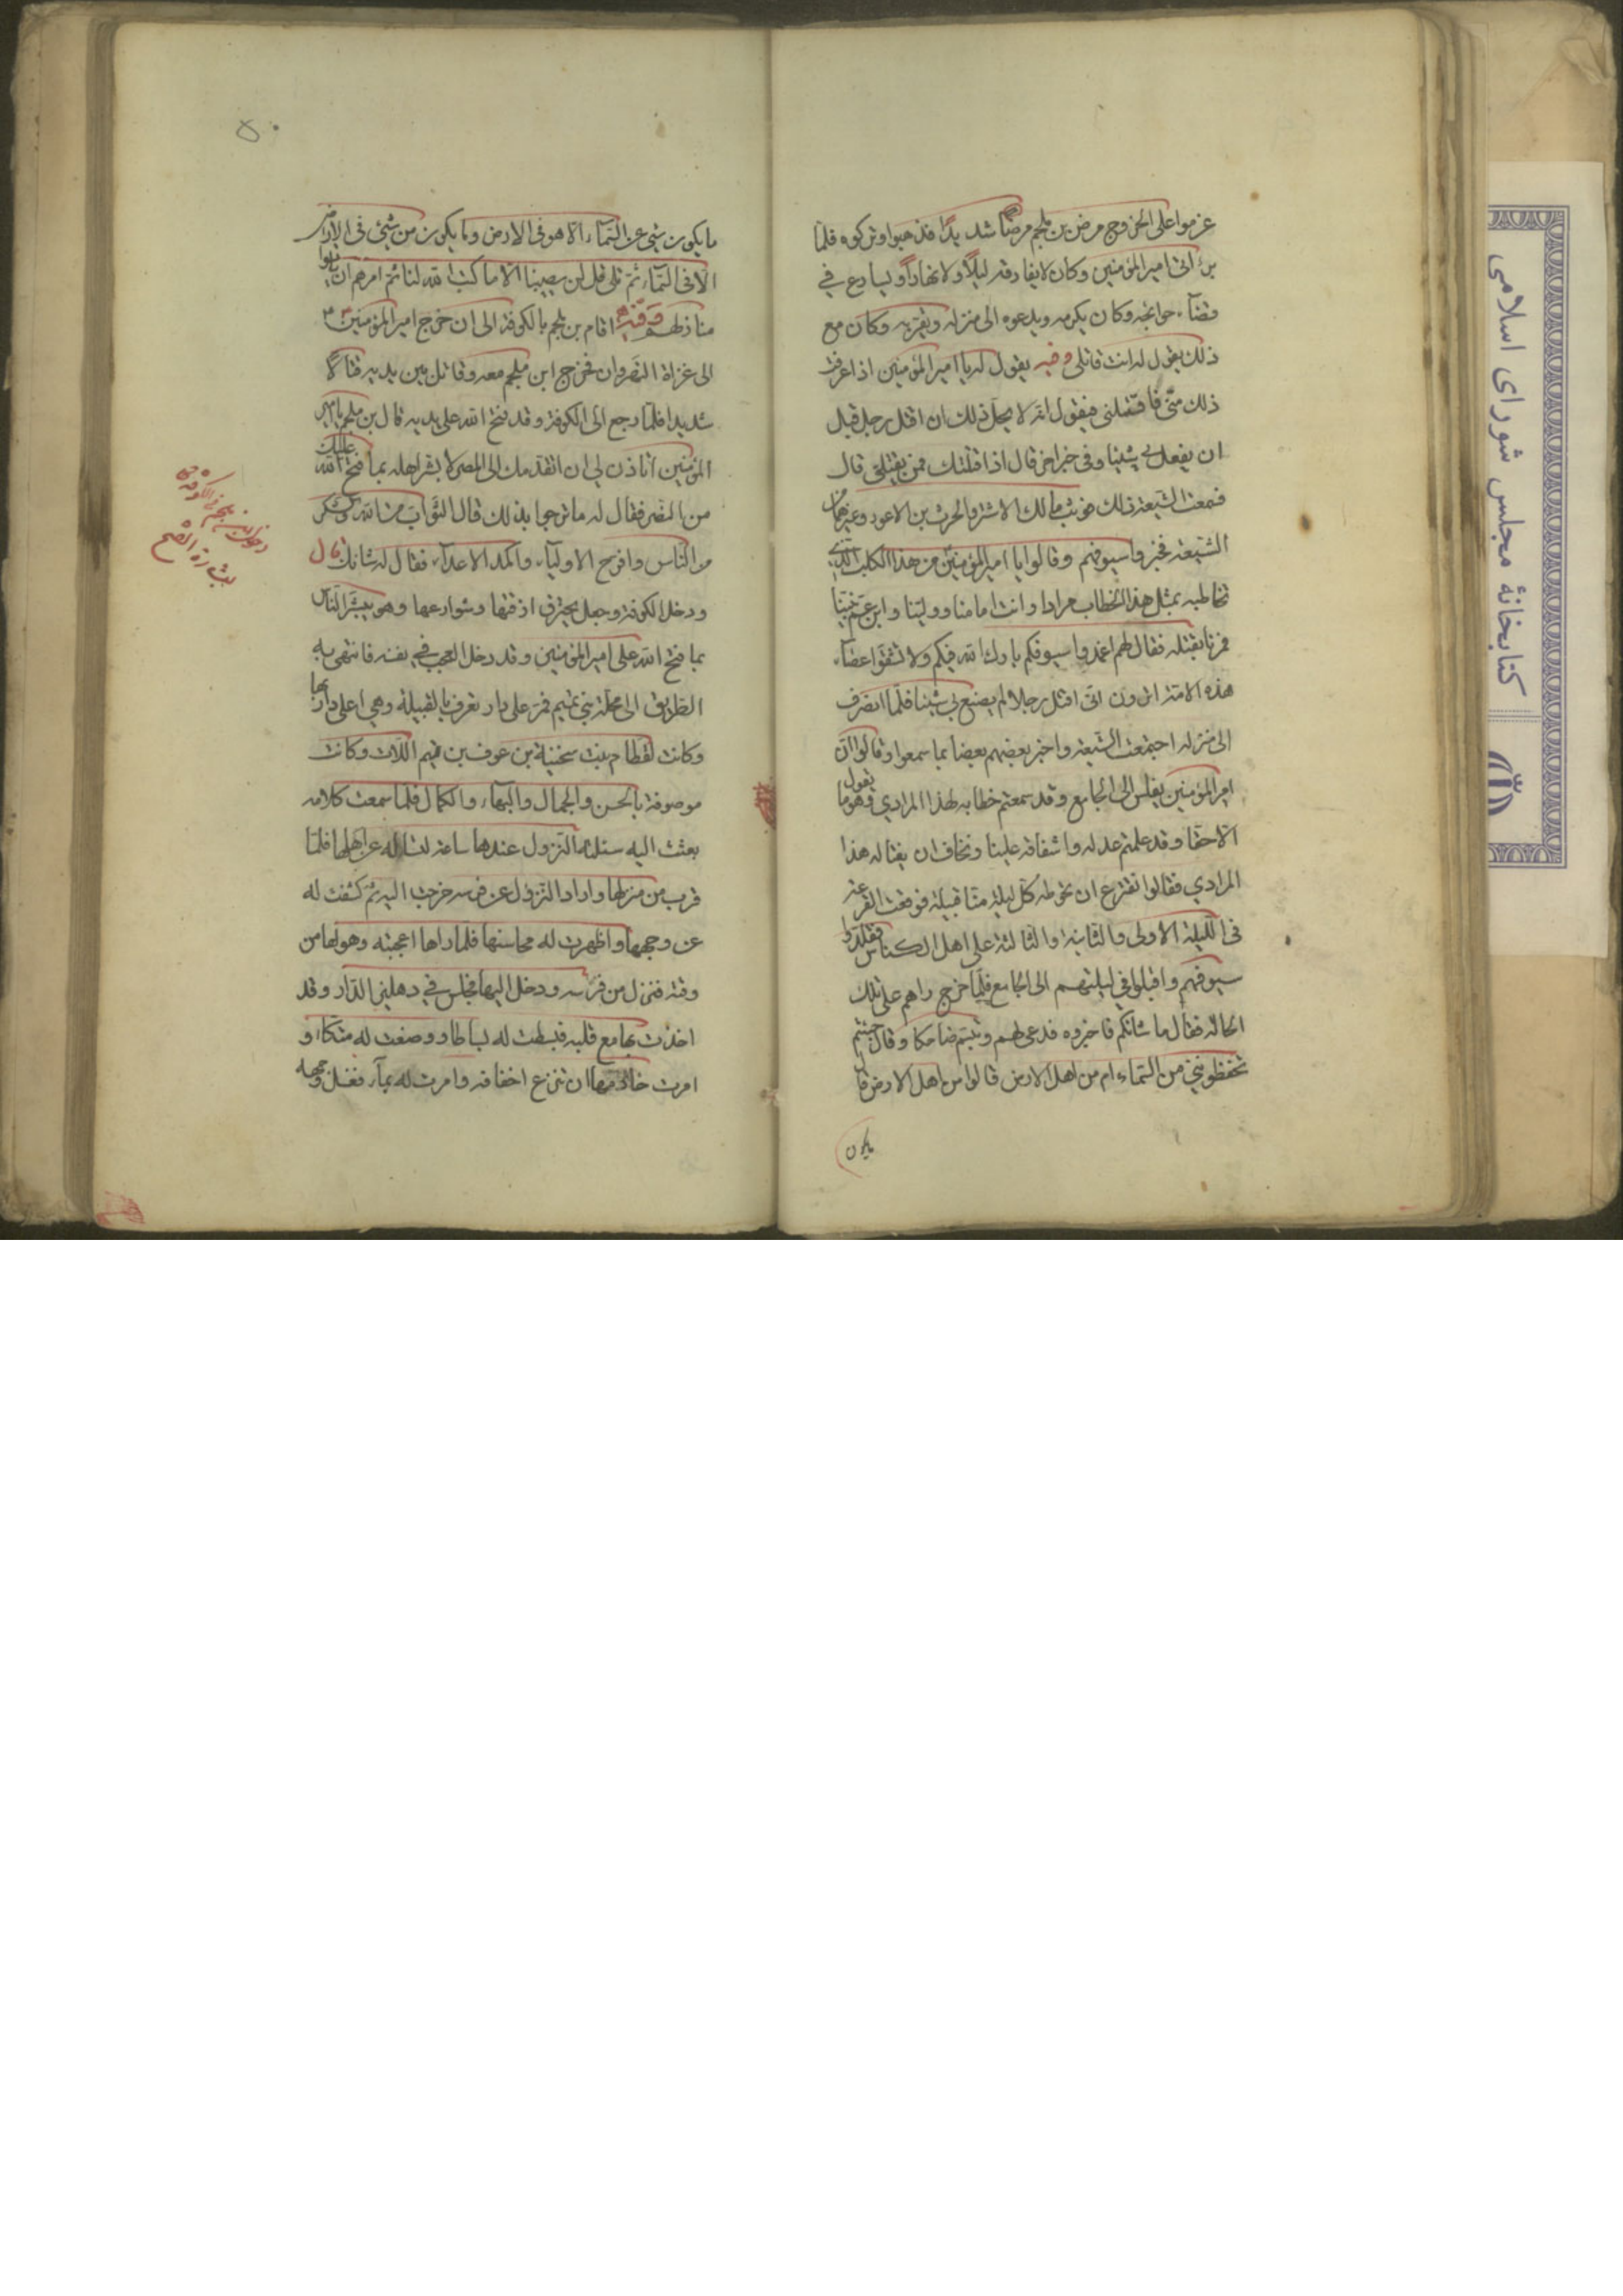 عزموا على الخروج مرض بن ملجم مرضًا شديدًا فذهبوا وتركوه فلما
برئ اتى امير المؤمنين وكان لا يفارقه ليلًا ولا نهارًا ويسارع في
قضآء حوائجه وكان يكرمه ويدعوه الى منزله ويقربه وكان مع
ذلك يقول له انت قاتلي يقول له يا امير المؤمنين اذا عرفت
ذلك منّي فاقتلني فيقول انه لا يحل ذلك ان اقتل رجل قبل
ان يفعل بي شيئا وفي خبر اخر قال اذا قتلتك فمن يقتلني قال
فسمعت الشيعة ذلك فوثب مالك الاشتر والحرث بن الاعور وغيرهما من
الشيعة فجزوا سيوفهم وقالوا يا امير المؤمنين من هذا الكلب الذي
تخاطبه بمثل هذا الخطاب مرارا وانت امامنا وولينا وابن عم نبينا
فمرنا بقتله فقال لهم اغمدوا سيوفكم بارك الله فيكم ولا تشقوا عصآء
هذه الامة اترون انى اقتل رجلا لم يصنع بي شيئا فلمّا انصرف
الى منزله اجتمعت الشيعة واخبر بعضهم بعضا بما سمعوا وقالوا انّ
امير المؤمنين يغلس الى الجامع وقد سمعتم خطابه لهذا المرادي وهو ما يقول
الا حقا وقد علمتم عدله واشفاقه علينا ونخاف ان يغتاله هذا
المرادي فقالوا نقترع ان تحوطه كل ليلة منّا قبيلة فوقعت القرعة
فى الليلة الاولى والثانية والثالثة على اهل الكناس فتقلدوا
سيوفهم واقبلوا في ليلتهم الى الجامع فلما خرج راهم على تلك
الحالة فقال ما شانكم فاخبروه فدعى لهم وتبسم ضاحكا وقال جئتم
تحفظوني من السّماء ام من اهل الارض قالوا من اهل الارض قال
ما يكون
٥٠
ما يكون شيئ عن السمآء الا هو فى الارض وما يكون من شيئ فى الارض
الا فى السمآء ثم تلى قل لن يصيبنا الا ما كتب الله لنا ثم امرهم ان ياتوا
منازلهم اقام بن ملجم بالكوفة الى ان خرج امير المؤمنين
الى غزاة النهروان فخرج ابن ملجم معه وقاتل بين يديه قتالًا
شديدا فلما رجع الى الكوفة وقد فتح الله على يديه قال بن ملجم يا امير
المؤمنين اتاذن لي ان اتقدمك الى المصر لابشر اهله بما فتح الله عليك
من النصر فقال له ما ترجوا بذلك قال الثواب من الله
من الناس وافرح الاوليآء واكمد الاعدآء فقال له شانك قال
ودخل الكوفة وجعل يخترق ازقتها وشوارعها وهو يبشر الناس
بما فتح الله على امير المؤمنين وقد دخل العجب في نفسه فانتهى به
الطريق الى محلة بني تميم فمر على دار تعرف بالقبيلة وهي اعلى دار بها
وكانت لقطام بنت سخينة بن عوف بن تيم اللات وكانت
موصوفة بالحسن والجمال والبهآء والكمال فلما سمعت كلامه
بعثت اليه سئلته النزول عندها ساعة لتساله عن اهلها فلما
قرب من منزلها واراد النزول عن فرسه خرجت اليه ثم كشفت له
عن وجهها واظهرت له محاسنها فلما راها اعجبته وهواها من
وقته فنزل من فرسه ودخل اليها فجلس في دهليز الدار وقد
اخذت بمجامع قلبه فبسطت له بساطا ووضعت له متكاً و
امرت خادمها ان تنزع اخفافه وامرت له بمآء فغسل وجهه
كتابخانهٔ مجلس شورای اسلامی